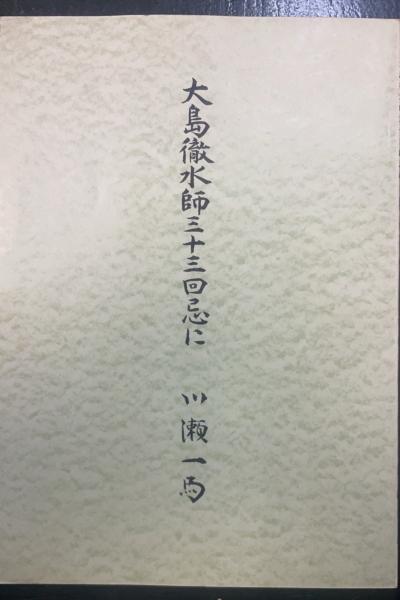 大島徹水師三十三回忌に　川瀬一馬